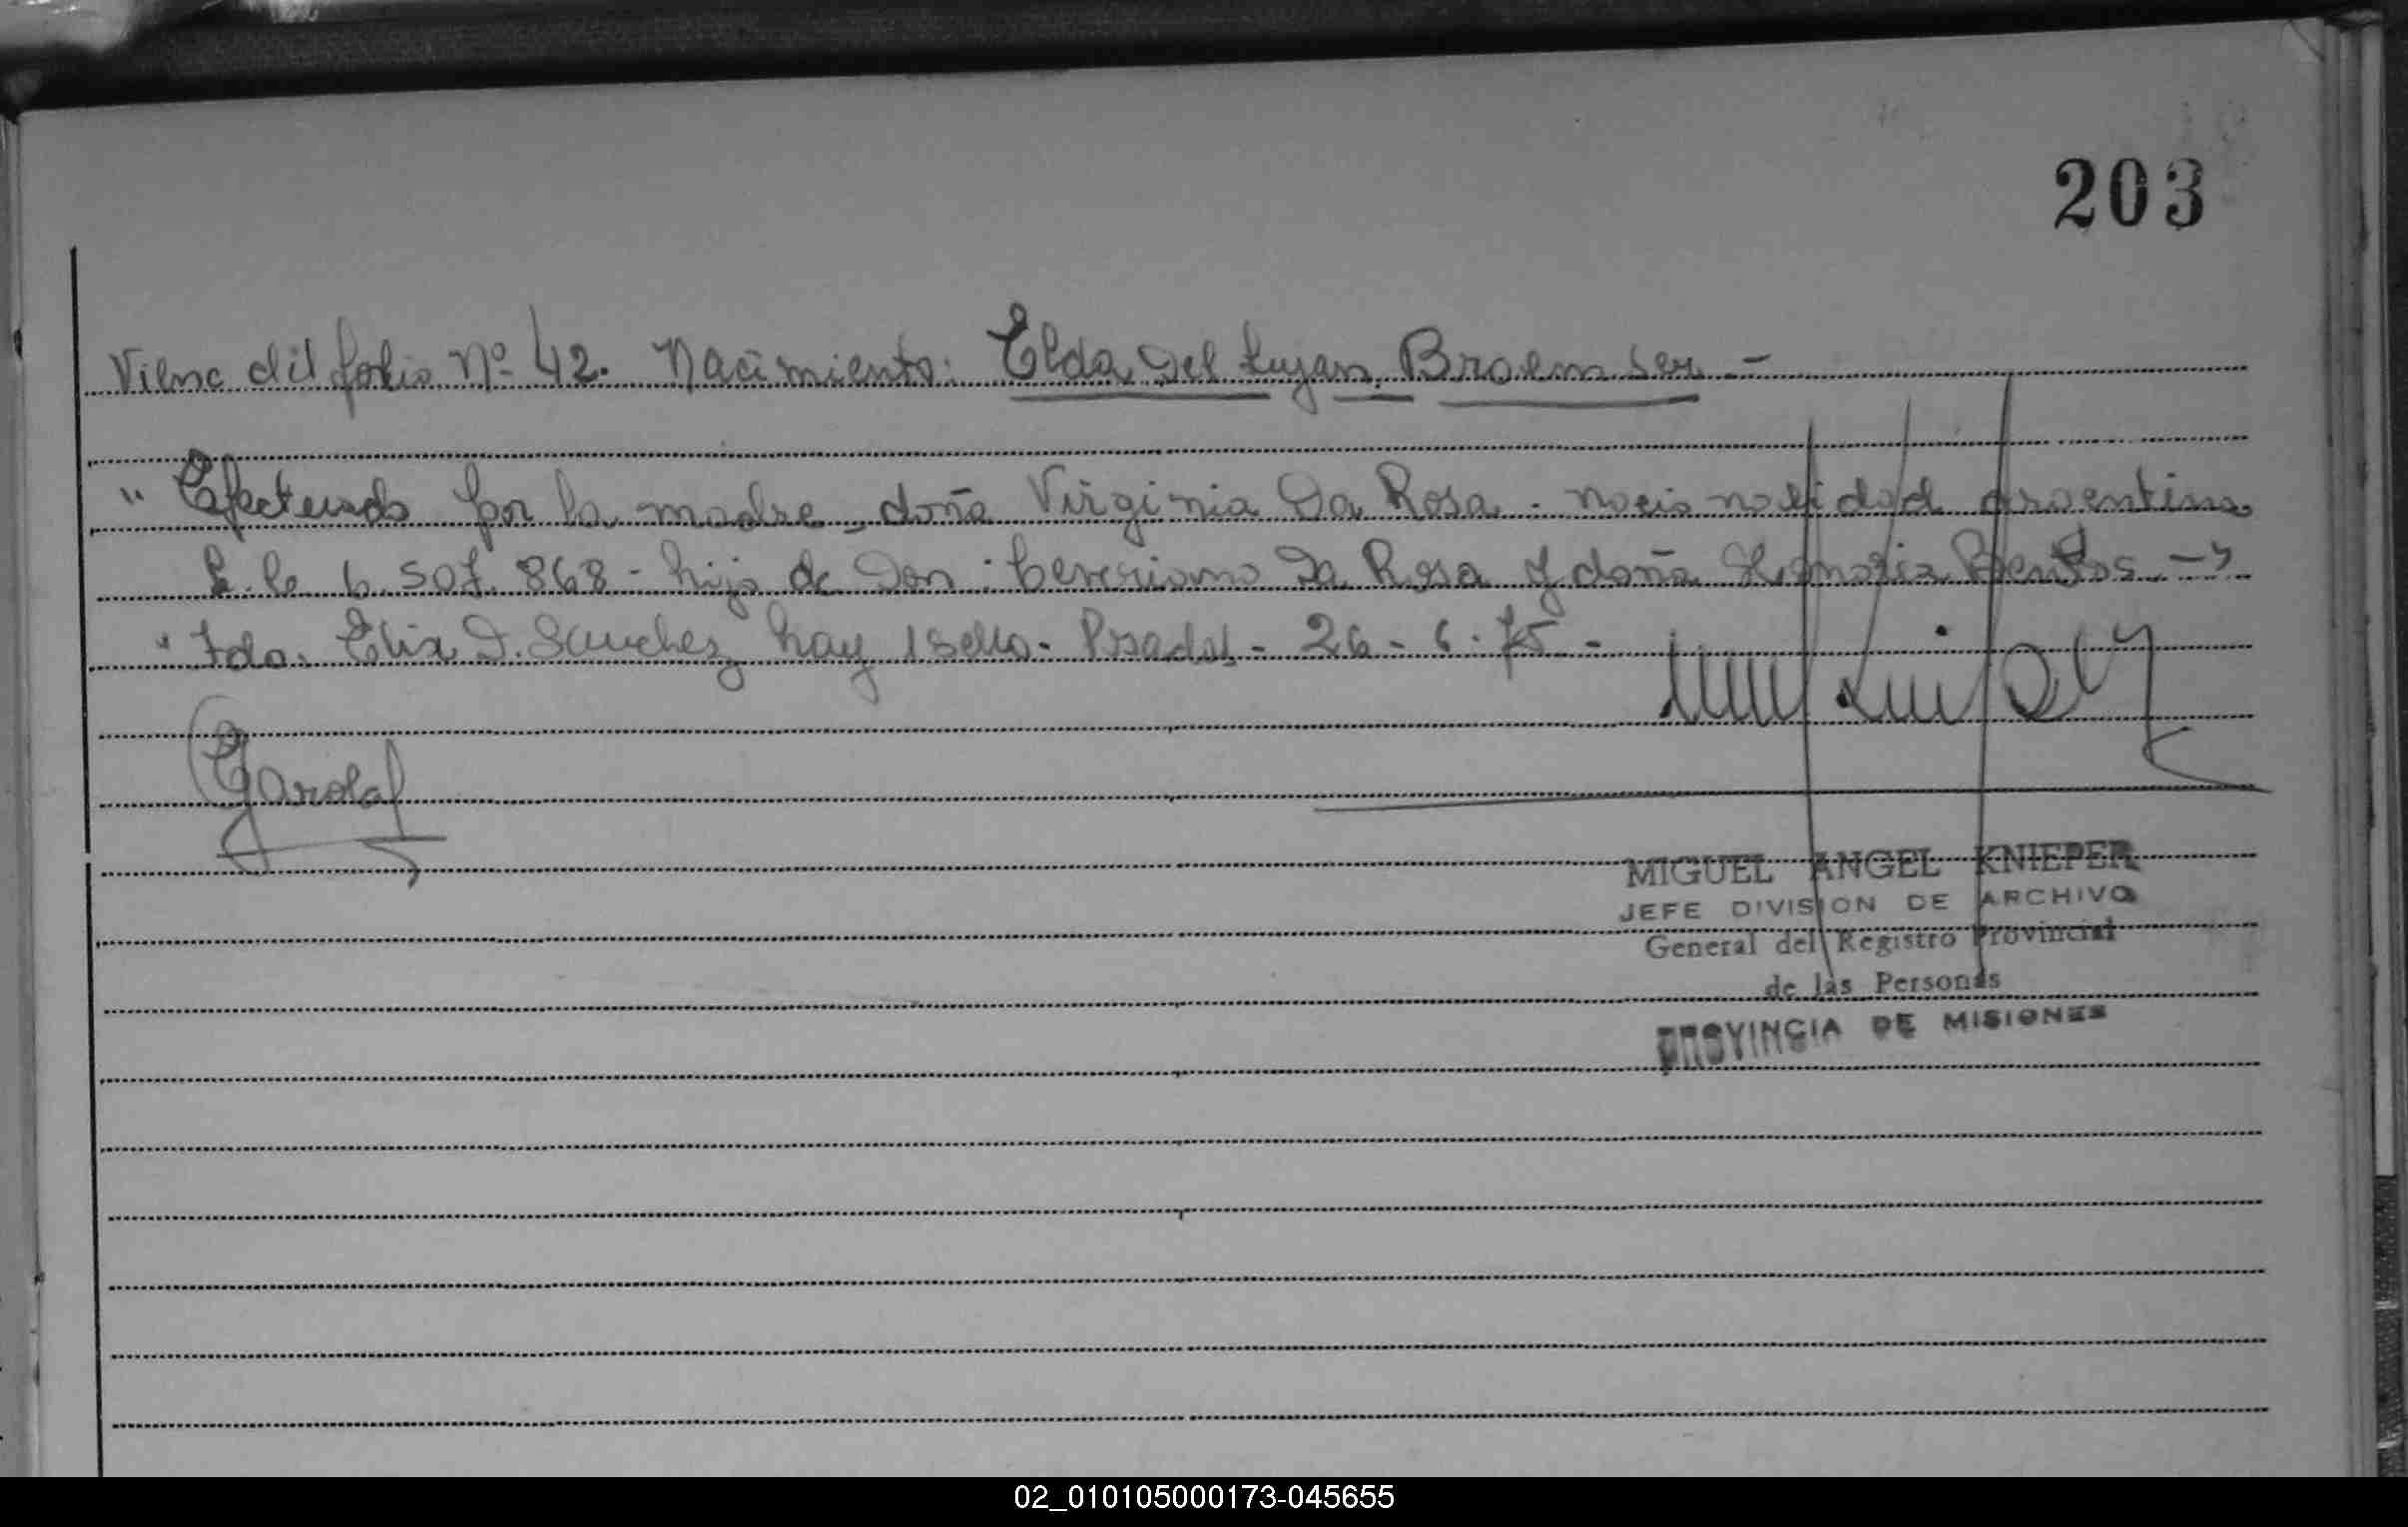 203
Viene del folio Nº 42. Nacimiento: Elda Del Lujan Braemser -
" Efectuado por la madre - doña Virginia Da Rosa - nacionalidad argentina
L. C. 6.507.868 - hija de Don: Ceveriano Da Rosa y doña Bentos -"
" Fdo. Elix D. Sanchez hay 1 sello - Psadas - 26 - 6 - 75 -
Garola
MIGUEL ANGEL KNIEPER
JEFE DIVISION DE ARCHIVO
General del Registro Provincial
de las Personas
PROVINCIA DE MISIONES
02_010105000173-045655